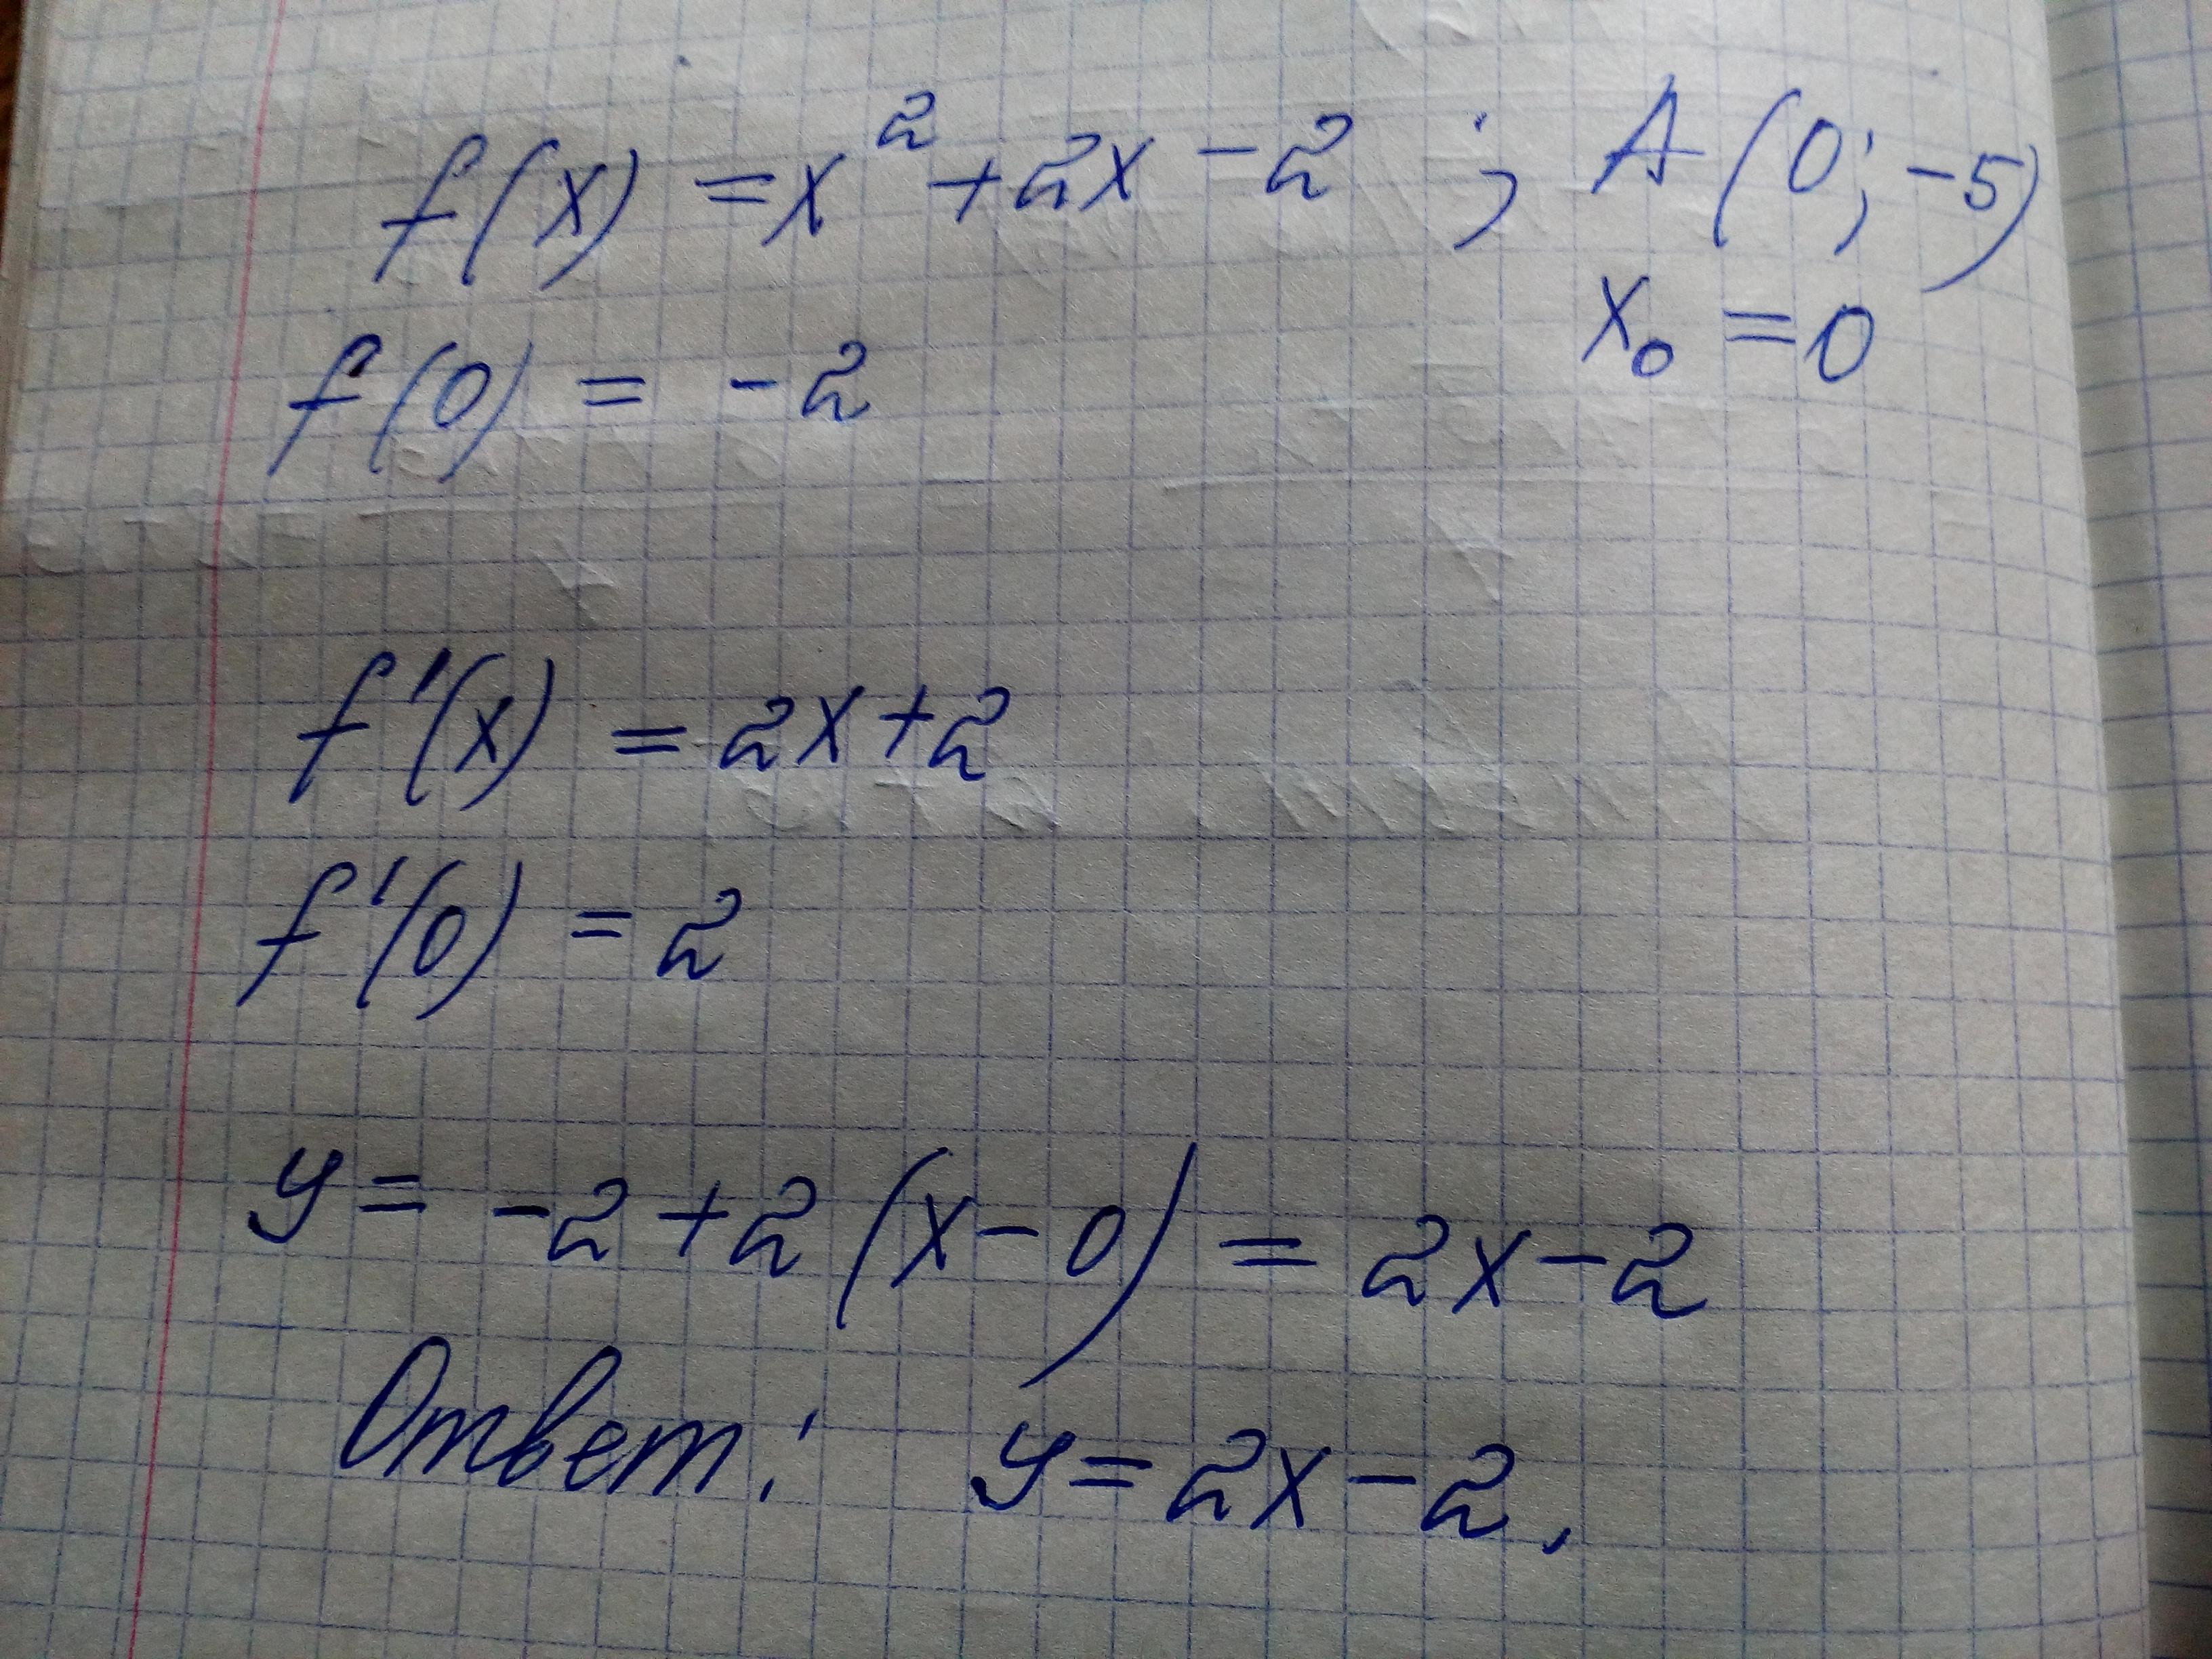 f(x) = x² + 2x - 2 ; A(0; -5)
x₀ = 0
f(0) = -2
f'(x) = 2x + 2
f'(0) = 2
y = -2 + 2(x - 0) = 2x - 2
Ответ: y = 2x - 2.